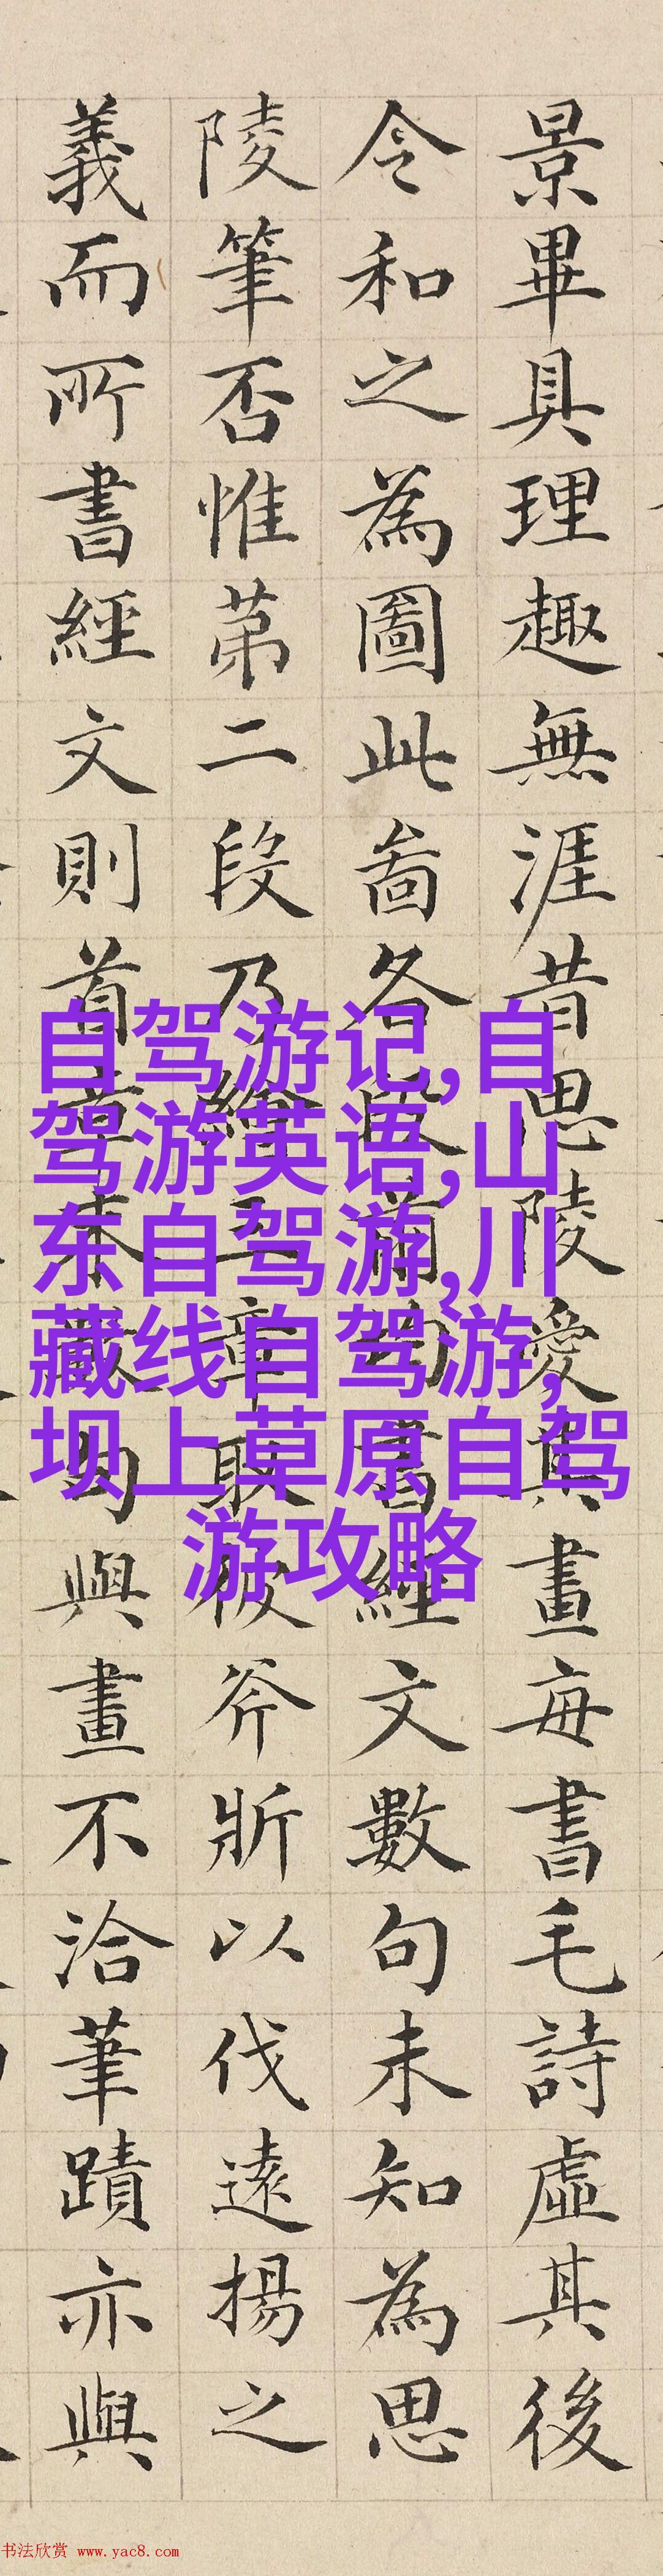 景畢具理趣無涯昔思陵愛其畫毎書毛詩虛其後
令和之為圖此啚各段前均書經文數句未知為思
陵筆否惟苐二段乃繪五章取彼斧斨以伐遠揚之
義而所書經文則首章末數句與畫不洽筆蹟亦與
自驾游记,自
驾游英语,山
东自驾游,川
藏线自驾游,
坝上草原自驾
游攻略
书法欣赏 www.yac8.com